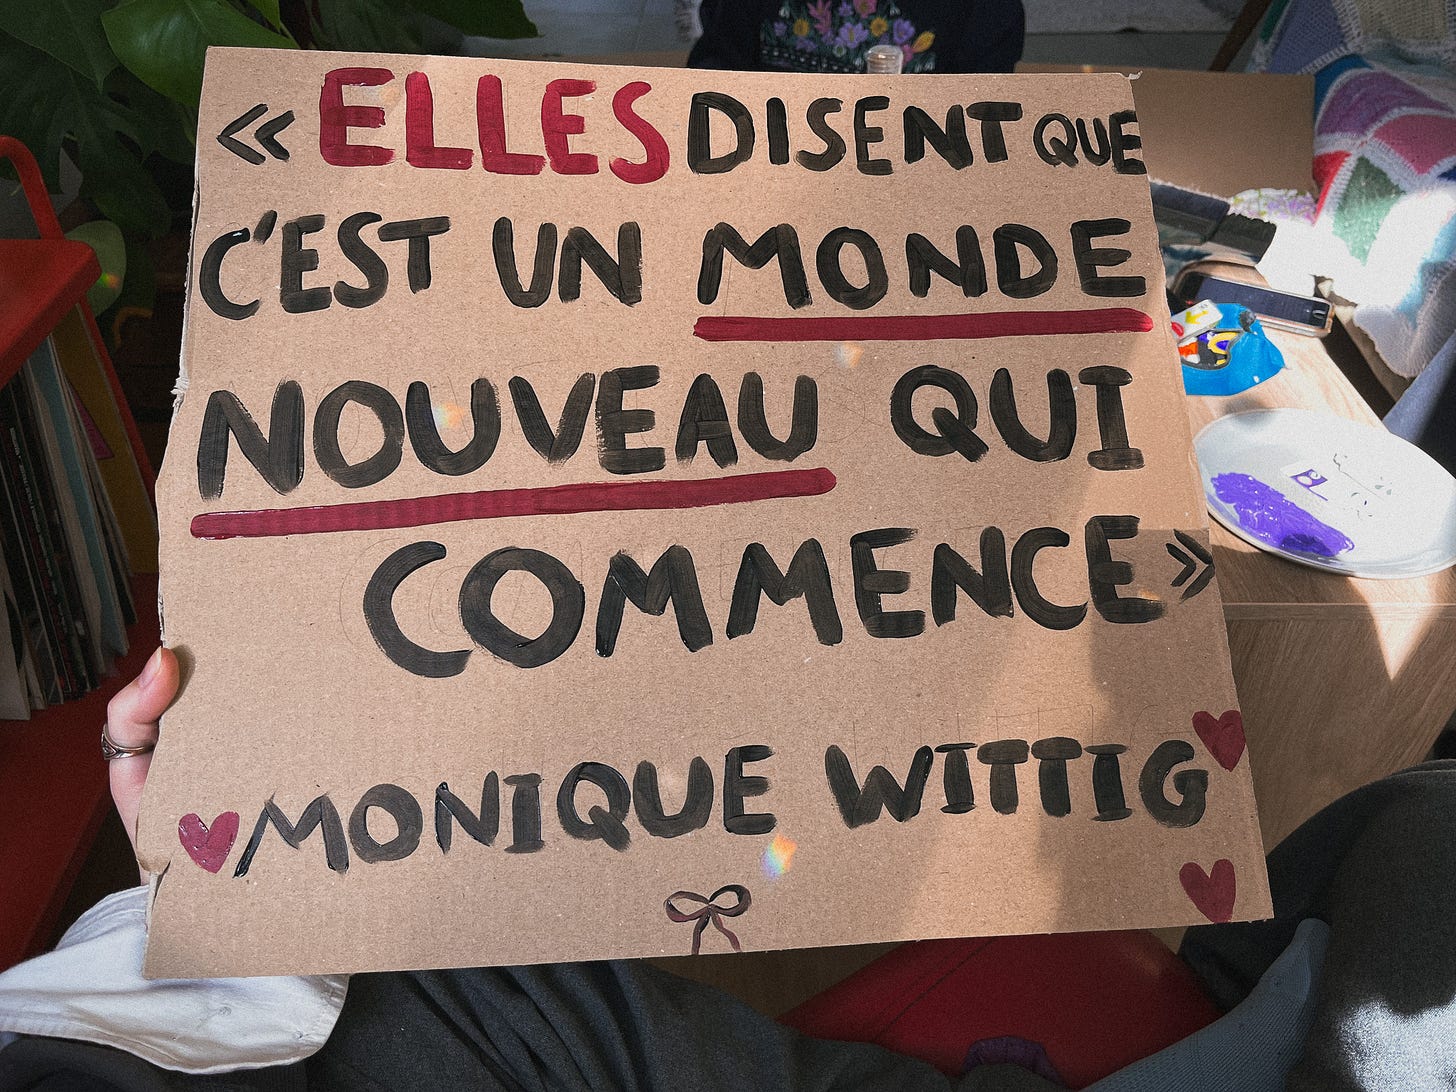 « ELLES DISENT QUE
C'EST UN MONDE
NOUVEAU QUI
COMMENCE »
MONIQUE WITTIG